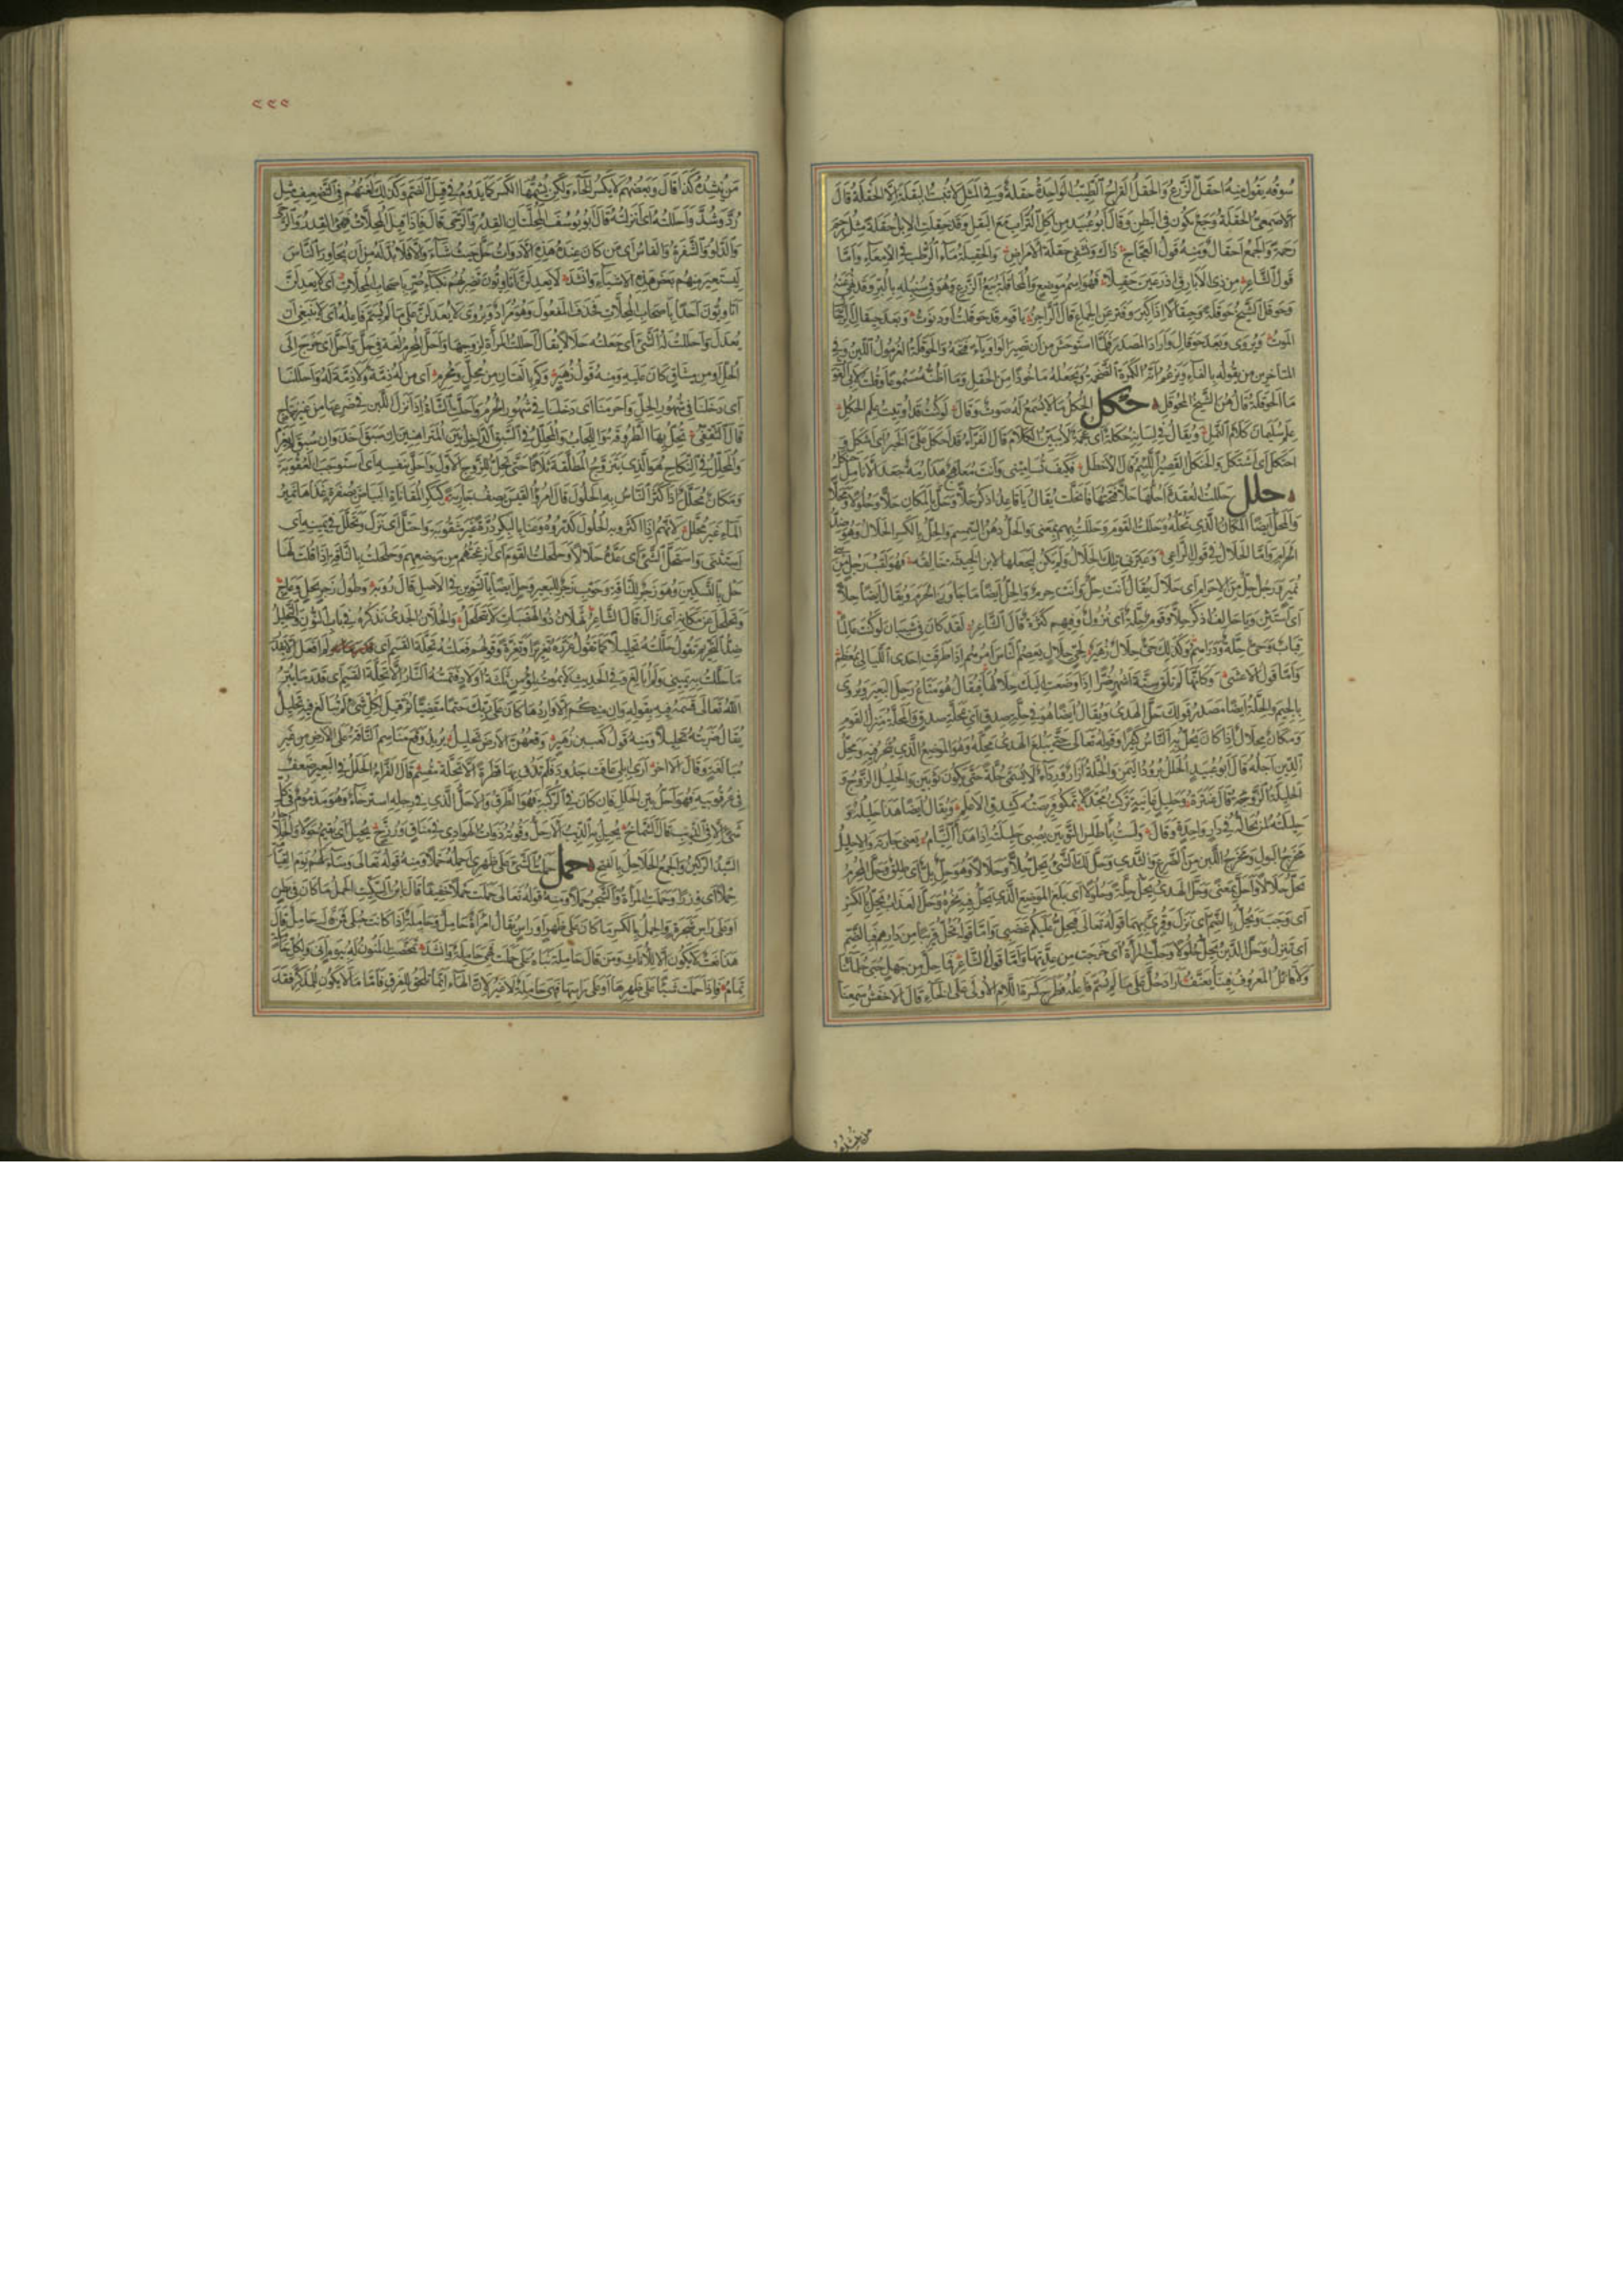 سوقه يقول منه احقل الزرع والحقل القراح الطيب الواحدة حقلة وفي المثل لا تنبت البقلة الا الحقلة قال
الاصمعي الحقلة وجع يكون في البطن وقال ابو عبيد من اكل التراب مع البقل وقد حقلت الابل حقلة مثل رحم
رحمة والجمع احقال ومنه قول العجاج ذاك وتشفي حقلة الامراض والحقيلة ماء الرطب في الامعاء واما
قول الشاعر من ذي الابارق اذ رعين حقيلا فهو اسم موضع والمحاقلة بيع الزرع وهو في سنبله بالبر وقد نهي عنه
وحوقل الشيخ حوقلة وحيقالا اذا كبر وفتر عن الجماع قال الراجز يا قوم قد حوقلت او دنوت وبعد حيقال الرجال
الموت ويروى وبعد حوقال واراد المصدر فلما استوحش من ان تصير الواو ياء فتحه والحوقلة الغرمول اللين وفي
المتاخرين من يقوله بالفاء ويزعم انه الكمرة الضخمة ويجعله ماخوذا من الحفل وما اظنه مسموعا وقلت لابي الغوث
ما الحوقلة قال هن الشيخ المحوقل حكل الحكل ما لا يسمع له صوت وقال لو كنت قد اوتيت علم الحكل
علم سليمان كلام النمل ويقال في لسانه حكلة اي عجمة لا يبين الكلام قال الفراء قد احكل علي الخبر اي اشكل
احتكل اي اشتكل والحنكل القصير اللئيم قال الاخطل فكيف تساميني وانت معلهج هذارمة جعد الانامل حنكل
حلل حللت العقدة احلها حلا فتحتها فانحلت يقال يا عاقد اذكر حلا وحل بالمكان حلا وحلولا ومحلا
والمحل ايضا المكان الذي تحله وحللت القوم وحللت بهم بمعنى والحل دهن السمسم والحل بالكسر الحلال وهو ضد
الحرام واما الحلال في قول الراعي وعيرني تلك الحلال ولم يكن ليجعلها لابن الخبيثة خالقه فهو لقب رجل من
نمير ورجل حل من الاحرام اي حلال يقال انت حل وانت حرم والحل ايضا ما جاوز الحرم ويقال ايضا حلا
اي استثن ويا حالف اذكر حلا وقوم حلة اي نزول وفيهم كثرة قال الشاعر لقد كان في شيبان لو كنت عالما
قباب وحي حلة ودراهم وكذلك حي حلال قال زهير لحي حلال يعصم الناس امرهم اذا طرقت احدى الليالي بمعظم
واما قول الاعشى وكانها لم تلق ستة اشهر ضرا اذا وضعت اليك حلالها فيقال هو متاع رحل البعير ويروى
بالجيم والحلة ايضا مصدر قولك حل الهدي ويقال ايضا هو في حلة صدق اي بمحلة صدق والمحلة منزل القوم
ومكان محلال اذا كان يحل به الناس كثيرا وقوله تعالى حتى يبلغ الهدي محله وهو الموضع الذي ينحر فيه ومحل
الدين اجله قال ابو عبيد الحلل برود اليمن والحلة ازار ورداء لا يسمى حلة حتى يكون ثوبين والحليل الزوج و
الحليلة الزوجة قال عنترة وحليل غانية تركت مجدلا تمكو فريصته كشدق الاعلم ويقال ايضا هذا حليله و
حليلته لمن يحاله في دار واحدة وقال ولست باطلس الثوبين يصبي حليلته اذا هدا النيام يعني جارته والاحليل
مخرج البول ومخرج اللبن من الضرع والثدي وحل لك الشيء يحل حلا وحلالا وهو حل بل اي طلق وحل المحرم
يحل حلالا واحل بمعنى وحل الهدي يحل حلة وحلولا اي بلغ الموضع الذي يحل فيه نحره وحل العذاب يحل بالكسر
اي وجب ويحل بالضم اي نزل وقرئ بهما قوله تعالى فيحل عليكم غضبي واما قوله او تحل قريبا من دارهم فبالضم
اي تنزل وحل الدين يحل حلولا وحلت المراة اي خرجت من عدتها واما قول الشاعر فما حل من جهل حبى حلمائنا
ولا قائل المعروف فينا يعنف اراد حل على ما لم يسم فاعله فطرح كسرة اللام الاولى على الحاء قال الاخفش سمعنا
من ينشده
٢٢٩
من ينشده كذا قال وبعضهم لا يكسر الحاء ولكن يشمها الكسر كما يروم في قيل الضم وكذلك لغتهم في التضعيف مثل
رد وشد واحللته اي انزلته قال ابو يوسف المحلتان القدر والرحى قال فاذا قيل المحلات فهي القدر والرحى
والدلو والشفرة والفاس اي من كان عنده هذه الادوات حل حيث شاء والا فلا بد له من ان يجاور الناس
ليستعير منهم بعض هذه الاشياء وانشد لا يعدلن اتاويون تضربهم نكباء صر باصحاب المحلات اي لا يعدلن
اتاويون احدا باصحاب المحلات فحذف المفعول وهو مراد ويروى لا يعدلن على ما لم يسم فاعله اي لا ينبغي ان
يعدل واحللت له الشيء اي جعلته حلالا يقال احللت المراة لزوجها واحل المحرم لغة في حل واحل اي خرج الى
الحل او من ميثاق كان عليه ومنه قول زهير وكم بالقنان من محل ومحرم اي من له ذمة ولا ذمة له واحللنا
اي دخلنا في شهور الحل واحرمنا اي دخلنا في شهور الحرم واحلت الشاة اذا نزل اللبن في ضرعها من غير نتاج
قال الثقفي تحل بها الطروقة واللجاب والمحلل في السبق الداخل بين المتراهنين ان سبق اخذ وان سبق لم يغرم
والمحلل في النكاح هو الذي يتزوج المطلقة ثلاثا حتى تحل للزوج الاول واحل بنفسه اي استوجب العقوبة
ومكان محلل اذا اكثر الناس به الحلول قال امرؤ القيس يصف جارية كبكر المقاناة البياض بصفرة غذاها نمير
الماء غير محلل لانهم اذا اكثروا به الحلول كدروه وعنى بالبكر درة غير مثقوبة واحتل اي نزل وتحلل في يمينه اي
استثنى واستحل الشيء اي عده حلالا وحلحلت القوم اي ازعجتهم من موضعهم وحلحلت بالناقة اذا قلت لها
حل بالتسكين وهو زجر للناقة وحوب زجر للبعير وحل ايضا بالتنوين في الاصل قال روبة وطول زجر بحل وعاج
وتحلحل عن مكانه اي زال قال الشاعر ثهلان ذو الهضبات لا يتحلحل والحلان الجدي نذكره في باب النون والتحليل
ضد التحريم تقول حللته تحليلا كما تقول غرره تغريرا وتغرة وقولهم فعلته تحلة القسم اي لم افعل الا بقدر
ما حللت به يميني ولم ابالغ وفي الحديث لا يموت للمؤمن ثلاثة اولاد فتمسه النار الا تحلة القسم اي قدر ما يبر
الله تعالى قسمه فيه بقوله وان منكم الا واردها كان على ربك حتما مقضيا ثم قيل لكل شيء لم يبالغ فيه تحليل
يقال ضربته تحليلا ومنه قول كعب بن زهير وقعهن الارض تحليل يريد وقع مناسم الناقة على الارض من غير
مبالغة وقال الاخر ارى ابلي عافت جدود فلم تذق بها قطرة الا تحلة مقسم قال الفراء الحلل في البعير ضعف
في عرقوبيه فهو احل بين الحلل فان كان في الركبة فهو الطرق والاحل الذي في رجله استرخاء وهو مذموم في كل
شيء الا في الذئب قال الشماخ يحيل به الذئب الاحل وقوته ذوات الهوادي من مناق ورزح يحيل اي يقيم حولا والحلاحل
السيد الركين والجمع الحلاحل بالفتح حمل حملت الشيء على ظهري احمله حملا ومنه قوله تعالى وساء لهم يوم القيامة
حملا اي وزرا وحملت المراة والشجر حملا ومنه قوله تعالى حملت حملا خفيفا قال ابن السكيت الحمل ما كان في بطن
او على راس شجرة والحمل بالكسر ما كان على ظهر او راس يقال امراة حامل وحاملة اذا كانت حبلى فمن قال حامل قال
هذا نعت لا يكون الا للاناث ومن قال حاملة بناه على حملت فهي حاملة وانشد تمخضت المنون له بيوم انى ولكل حاملة
تمام فاذا حملت شيئا على ظهرها او على راسها فهي حاملة لا غير لان الهاء انما تلحق للفرق فاما ما لا يكون للمذكر فقد